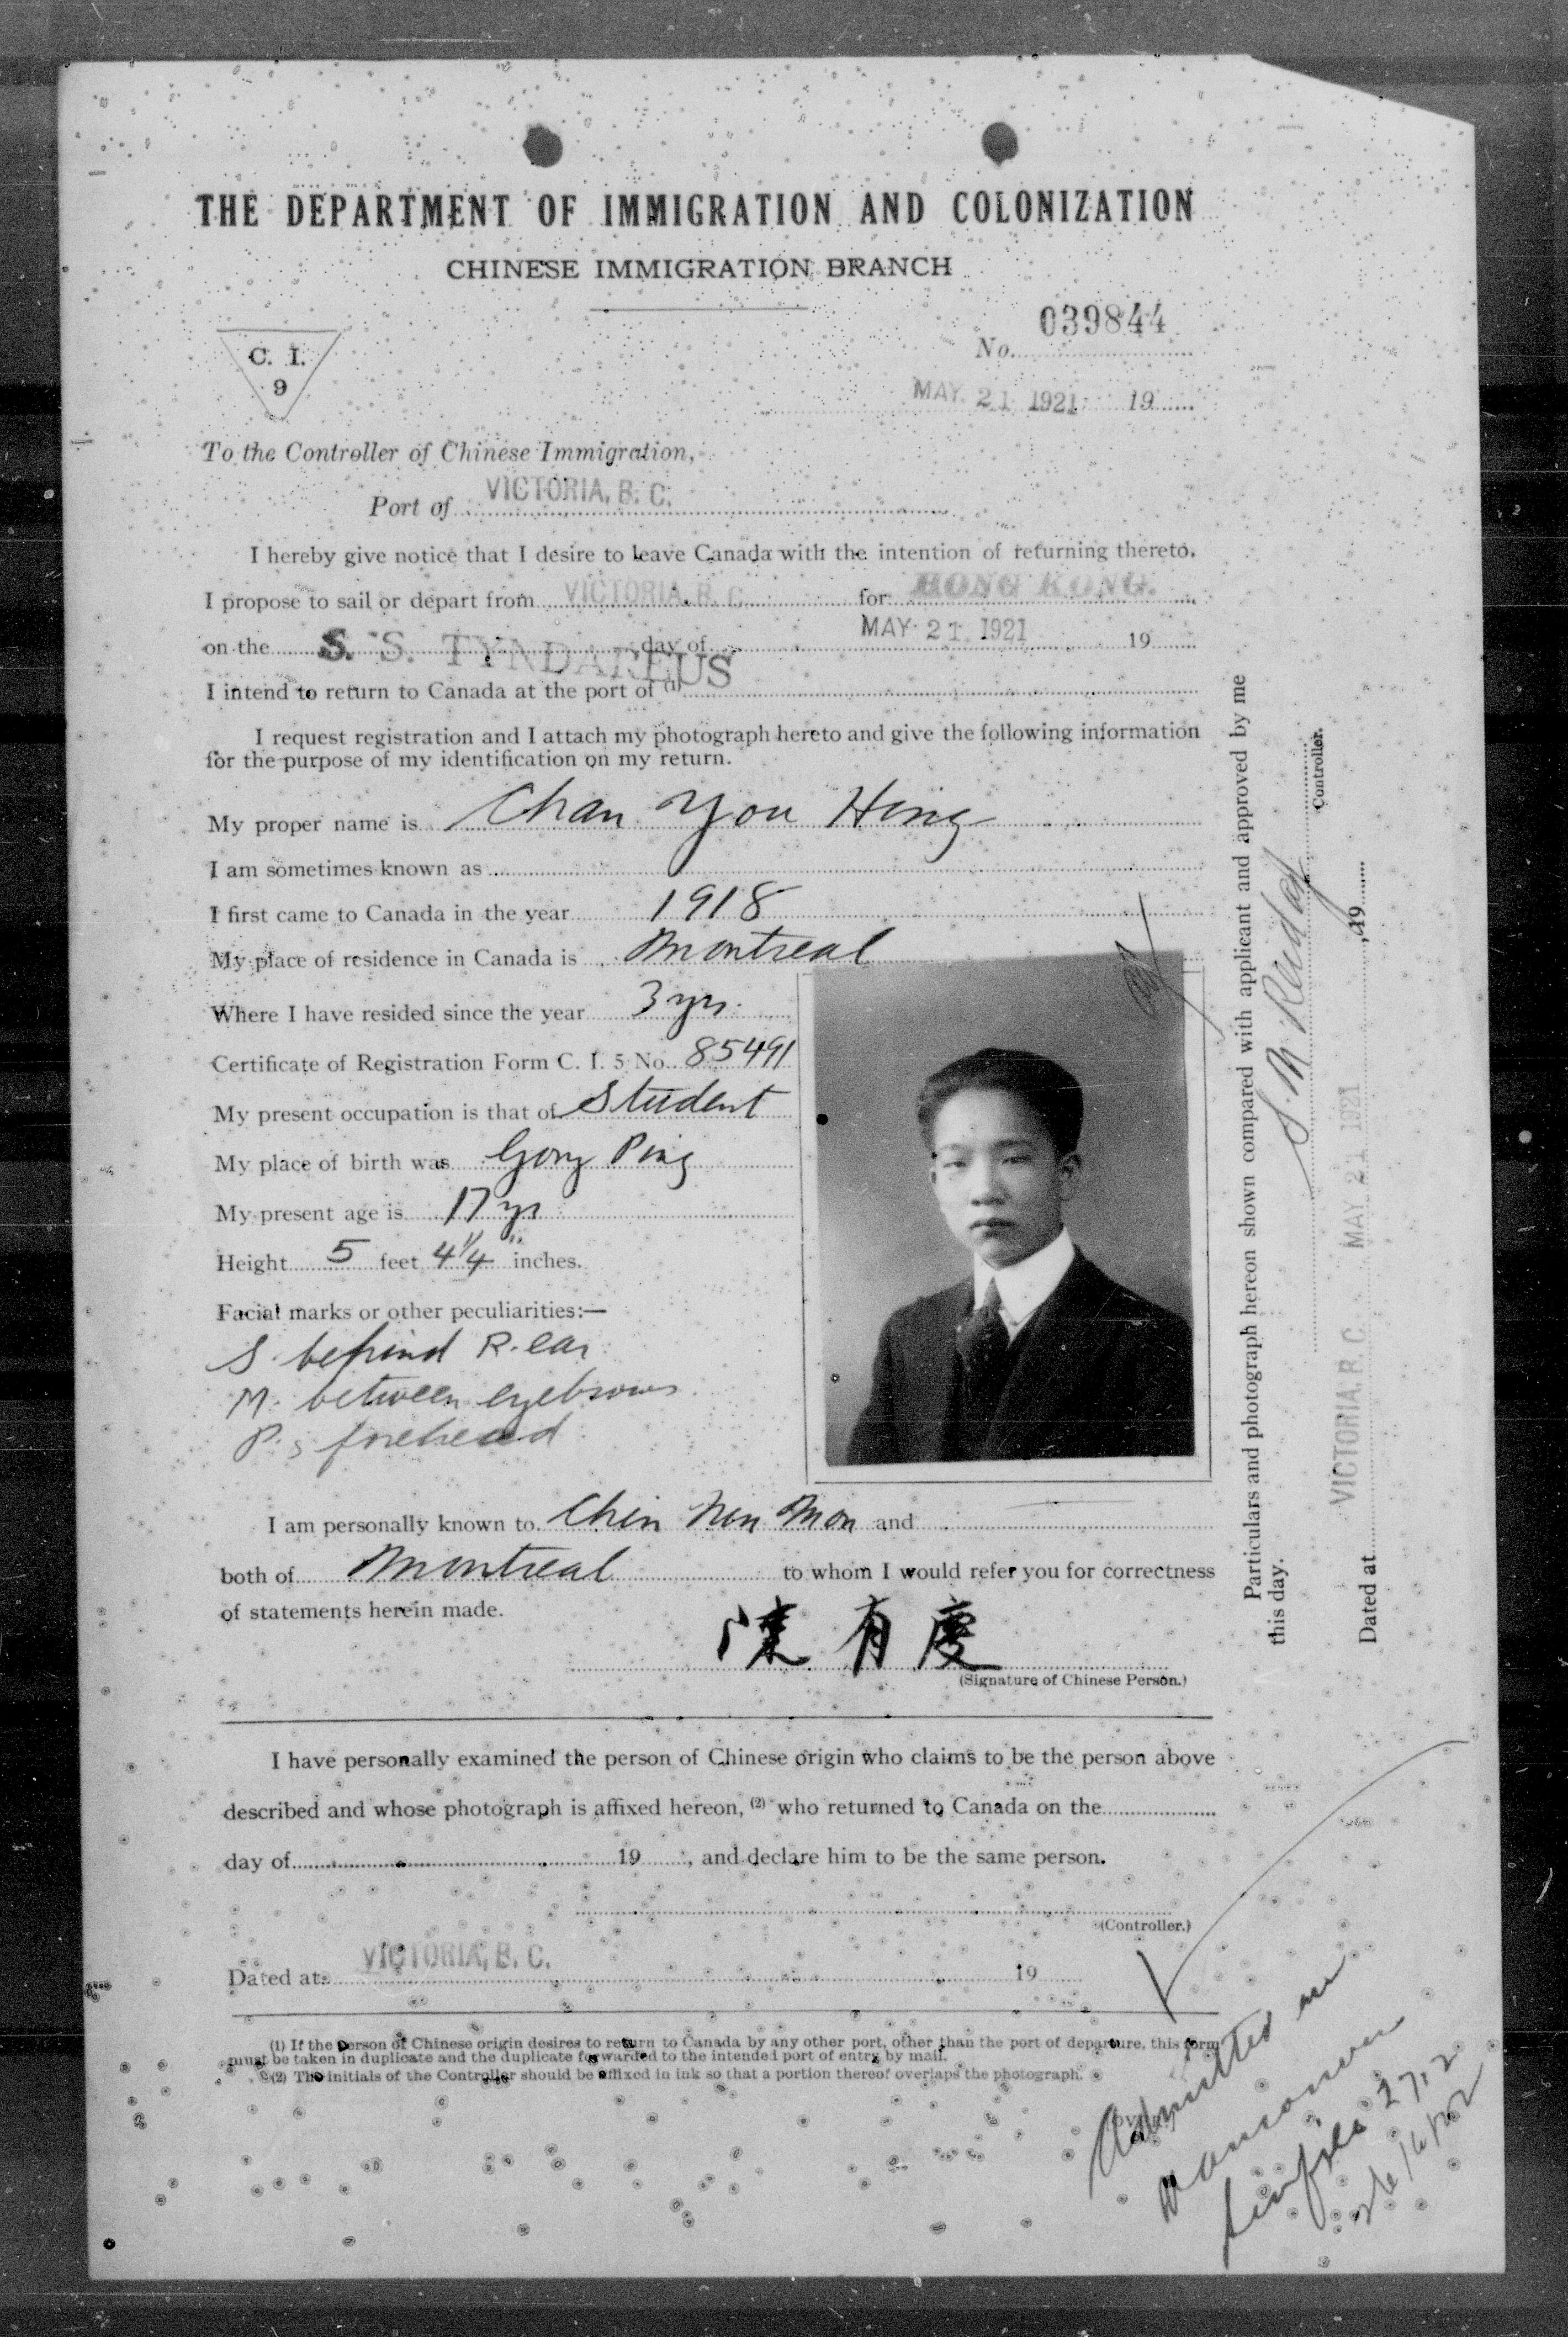 THE DEPARTMENT OF IMMIGRATION AND COLONIZATION
CHINESE IMMIGRATION BRANCH
C. I.
9
No. 039844
MAY 21 1921 19
To the Controller of Chinese Immigration,
Port of VICTORIA, B. C.
I hereby give notice that I desire to leave Canada with the intention of returning thereto.
I propose to sail or depart from VICTORIA, B. C. for HONG KONG.
on the S. S. TYNDAREUS day of MAY 21 1921 19
I intend to return to Canada at the port of (1)
I request registration and I attach my photograph hereto and give the following information
for the purpose of my identification on my return.
My proper name is Chan You Hing
I am sometimes known as
I first came to Canada in the year 1918
My place of residence in Canada is Montreal
Where I have resided since the year 3 yrs.
Certificate of Registration Form C. I. 5 No. 85491
My present occupation is that of Student
My place of birth was Gong Ping
My present age is 17 yr
Height 5 feet 4 1/4" inches.
Facial marks or other peculiarities:—
S. behind R. ear
M. between eyebrows
P.s forehead
I am personally known to Chin Nen Mon and
both of Montreal to whom I would refer you for correctness
of statements herein made.
陳有慶
(Signature of Chinese Person.)
I have personally examined the person of Chinese origin who claims to be the person above
described and whose photograph is affixed hereon, (2) who returned to Canada on the
day of 19 , and declare him to be the same person.
(Controller.)
Dated at VICTORIA, B. C. 19
(1) If the person of Chinese origin desires to return to Canada by any other port, other than the port of departure, this form
must be taken in duplicate and the duplicate forwarded to the intended port of entry by mail.
(2) The initials of the Controller should be affixed in ink so that a portion thereof overlaps the photograph.
Particulars and photograph hereon shown compared with applicant and approved by me
this day.
Controller.
Dated at VICTORIA, B. C. MAY 21 1921 , 19
Admitted in
Vancouver